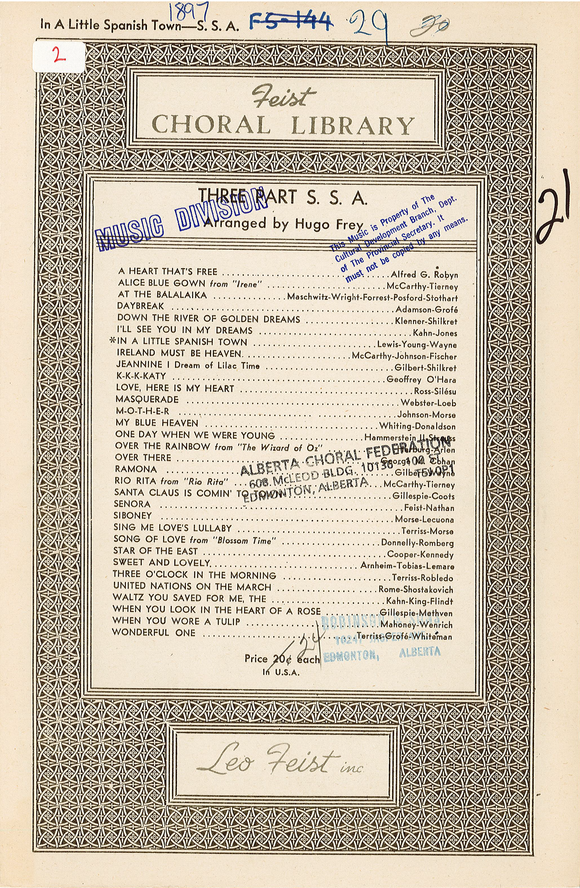 1897
In A Little Spanish Town—S. S. A. F5-144 29 30
2
Feist
CHORAL LIBRARY
21
THREE PART S. S. A.
MUSIC DIVISION
Arranged by Hugo Frey
This Music is Property of The
Cultural Development Branch, Dept.
of The Provincial Secretary. It
must not be copied by any means.
A HEART THAT'S FREE Alfred G. Robyn
ALICE BLUE GOWN from "Irene" McCarthy-Tierney
AT THE BALALAIKA Maschwitz-Wright-Forrest-Posford-Stothart
DAYBREAK Adamson-Grofé
DOWN THE RIVER OF GOLDEN DREAMS Klenner-Shilkret
I'LL SEE YOU IN MY DREAMS Kahn-Jones
*IN A LITTLE SPANISH TOWN Lewis-Young-Wayne
IRELAND MUST BE HEAVEN McCarthy-Johnson-Fischer
JEANNINE I Dream of Lilac Time Gilbert-Shilkret
K-K-K-KATY Geoffrey O'Hara
LOVE, HERE IS MY HEART Ross-Silésu
MASQUERADE Webster-Loeb
M-O-T-H-E-R Johnson-Morse
MY BLUE HEAVEN Whiting-Donaldson
ONE DAY WHEN WE WERE YOUNG Hammerstein II-Strauss
OVER THE RAINBOW from "The Wizard of Oz" Harburg-Arlen
OVER THERE George M. Cohan
RAMONA Gilbert-Wayne
RIO RITA from "Rio Rita" McCarthy-Tierney
SANTA CLAUS IS COMIN' TO TOWN Gillespie-Coots
SENORA Feist-Nathan
SIBONEY Morse-Lecuona
SING ME LOVE'S LULLABY Terriss-Morse
SONG OF LOVE from "Blossom Time" Donnelly-Romberg
STAR OF THE EAST Cooper-Kennedy
SWEET AND LOVELY Arnheim-Tobias-Lemare
THREE O'CLOCK IN THE MORNING Terriss-Robledo
UNITED NATIONS ON THE MARCH Rome-Shostakovich
WALTZ YOU SAVED FOR ME, THE Kahn-King-Flindt
WHEN YOU LOOK IN THE HEART OF A ROSE Gillespie-Methven
WHEN YOU WORE A TULIP Mahoney-Wenrich
WONDERFUL ONE Terriss-Grofé-Whiteman
ALBERTA CHORAL FEDERATION
608 McLEOD BLDG. 10136 - 100 ST.
EDMONTON, ALBERTA T5J 0P1
EDMONTON, ALBERTA
Price 20¢ each
In U.S.A.
Leo Feist inc